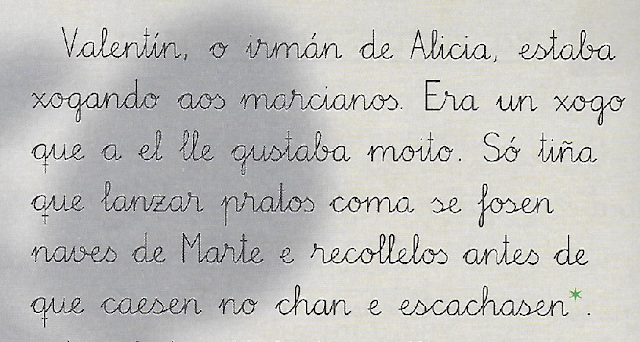 Valentín, o irmán de Alicia, estaba
xogando aos marcianos. Era un xogo
que a el lle gustaba moito. Só tiña
que lanzar pratos coma se fosen
naves de Marte e recollelos antes de
que caesen no chan e escachasen*.